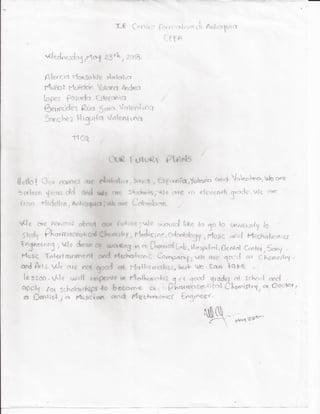 I.E Centro Formativo de Antioquia
CEFA
Wednesday, May 23th, 2018.
Atencia Monsalve Natalia
Muñoz Muñoz Yuliana Andrea
Lopez Posada Estefania
Benavides Rua Sara Valentina
Sanchez Higuita Valentina
11C2
OUR FUTURE PLANS
Hello! Our names are Natalia, Sara, Estefania, Yuliana and Valentina, We are
sixteen years old and we are Students, We are in eleventh grade. We are
from Medellin, Antioquia, we are Colombian.
We are nervous about our future. We would like to go to university to
study Pharmaceutical Chemistry, Medicine, Odontology, Music and Mechatronics
Engineering; We dream of working in a Chemical Lab, Hospital, Dental Center, Sony
Music Entertainment and Mechatronic Company; We are good at Chemistry
and Arts. We are not good at Mathematics, but we can take
lesson. We will improve in Mathematics, get good grades at school and
apply for scholarships to become a Pharmaceutical Chemistry, a Doctor,
a Dentist, a Musician and Mechatronics Engineer.